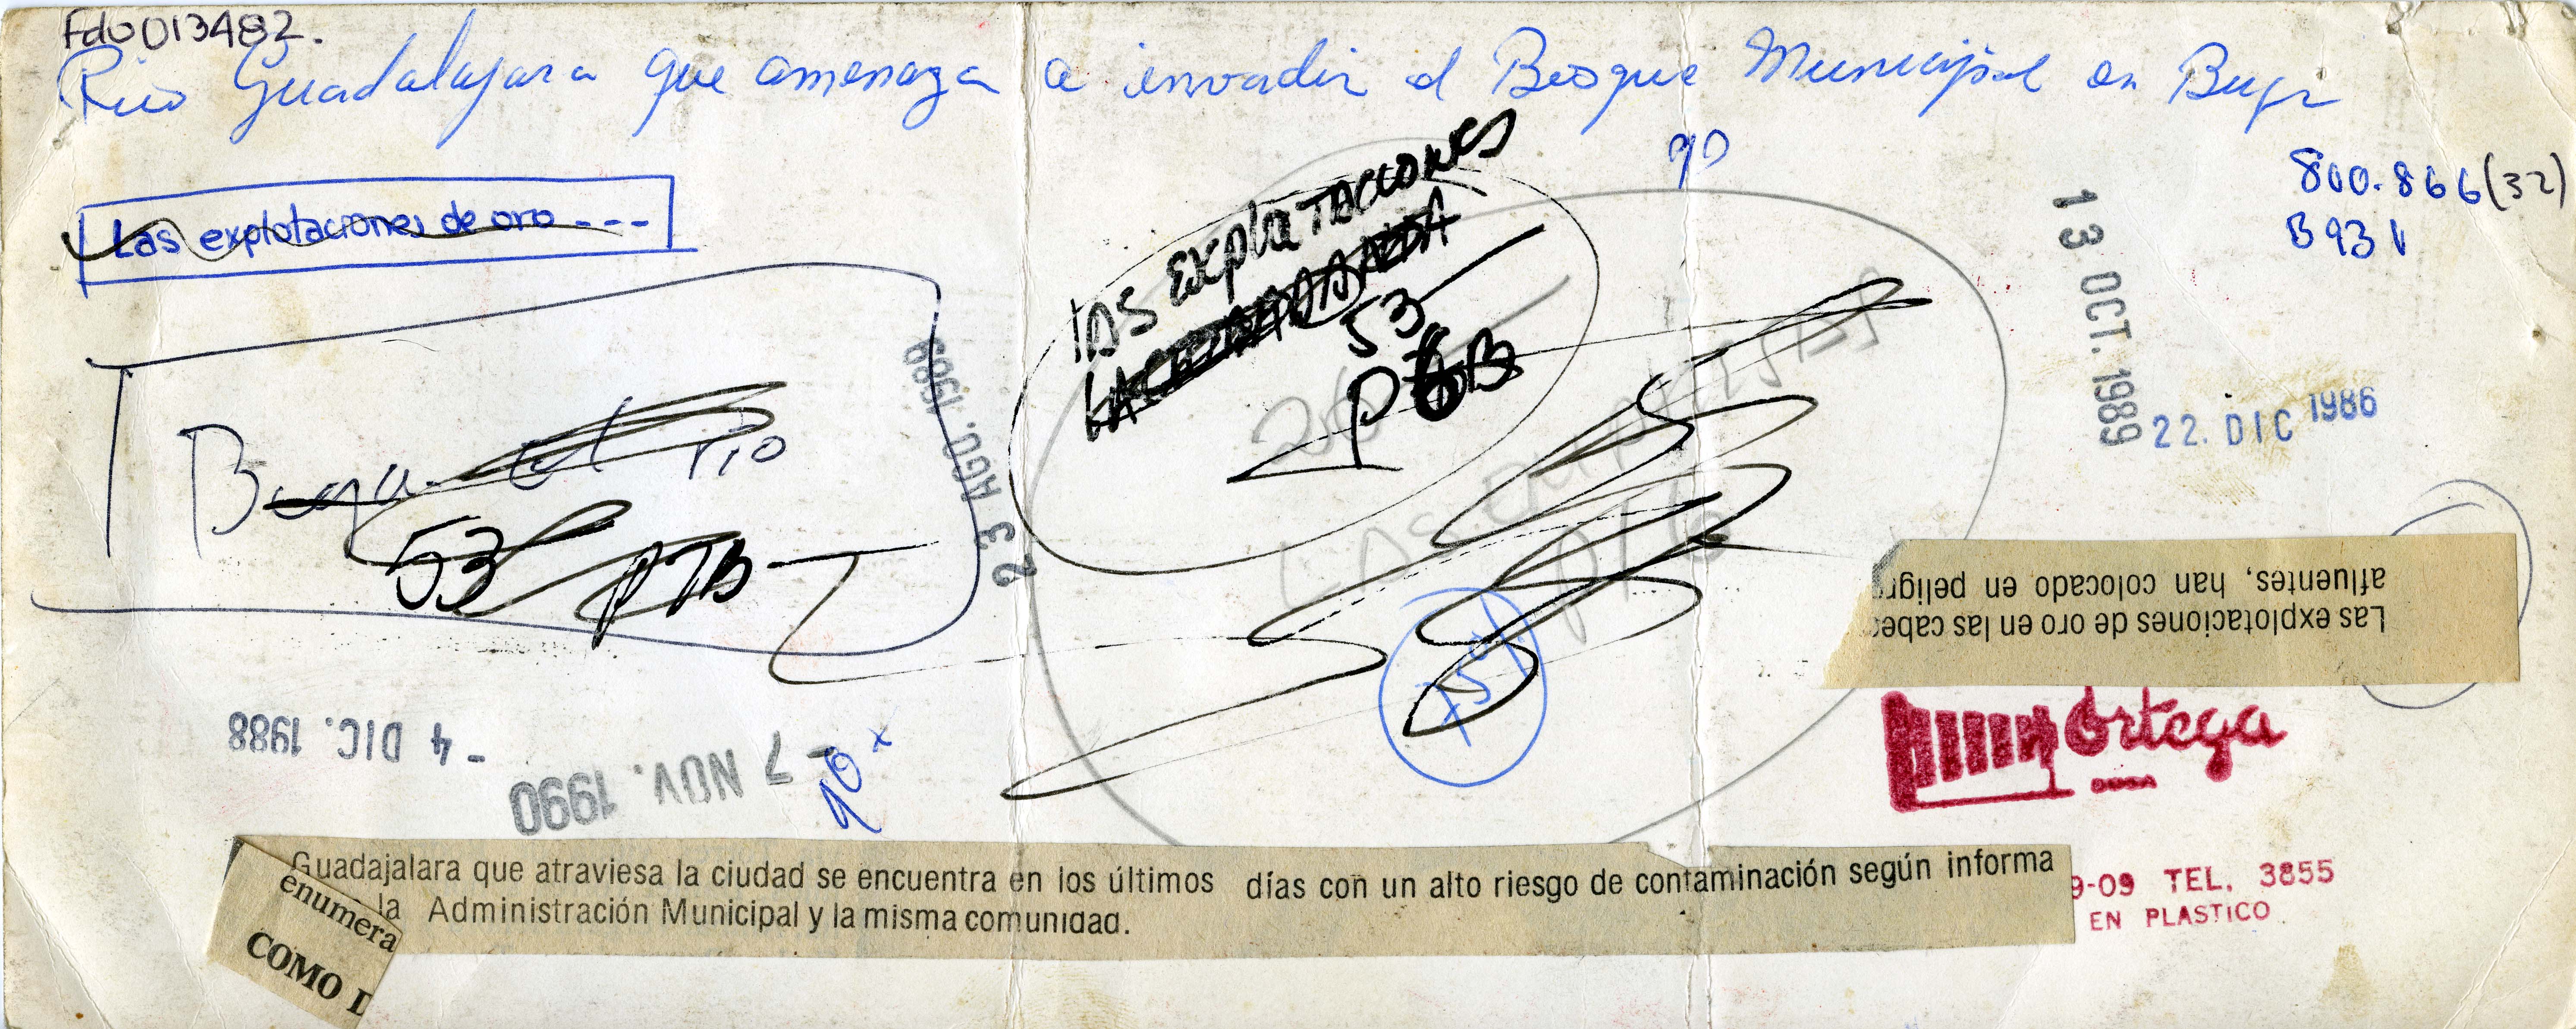 Fdo013482.
Rio Guadalajara que amenaza a invadir el Bosque Municipal en Buga
90
800.866(32)
B931
Las explotaciones de oro ---
LAS ExplotACCIONES
53
P6B
13 OCT. 1989
22. DIC 1986
23 AGO. 1989
Buga. el rio
53 PTB
26
P/6
75%
Las explotaciones de oro en las cabec
afluentes, han colocado en peligr
Ortega
- 4 DIC. 1988
- 7 NOV. 1990
90 x
Guadajalara que atraviesa la ciudad se encuentra en los últimos días con un alto riesgo de contaminación según informa
la Administración Municipal y la misma comunidad.
enumera
COMO D
9-09 TEL. 3855
EN PLASTICO